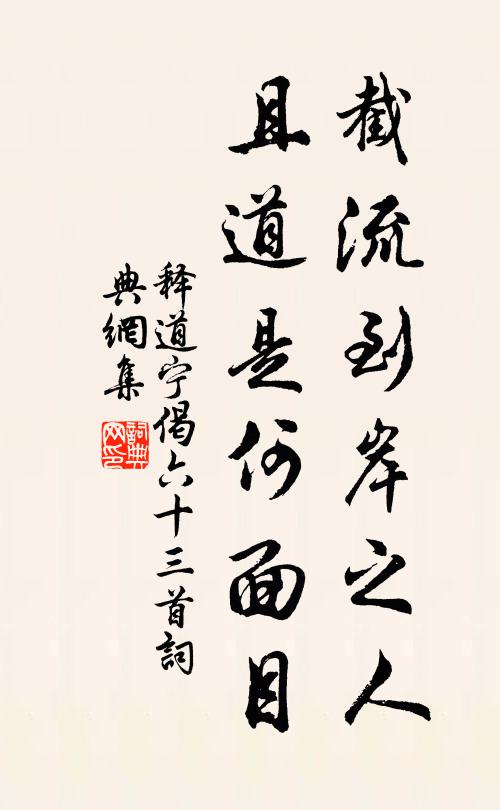 截流到岸之人
且道是何面目
释道宁偈六十三首詞
典網集
詞典
网印